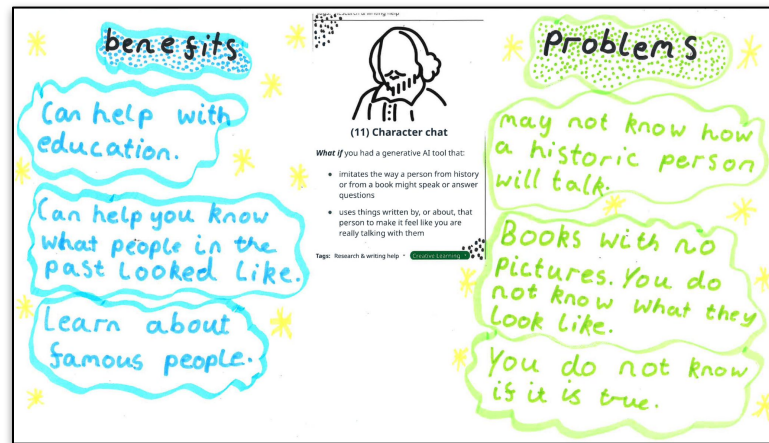 benefits
Can help with
education.
Can help you know
what people in the
past looked like.
Learn about
famous people.
(11) Character chat
What if you had a generative AI tool that:
• imitates the way a person from history
or from a book might speak or answer
questions
• uses things written by, or about, that
person to make it feel like you are
really talking with them
Tags: Research & writing help • Creative Learning •
Problems
may not know how
a historic person
will talk.
Books with no
Pictures. You do
not know what they
look like.
You do not know
if it is true.